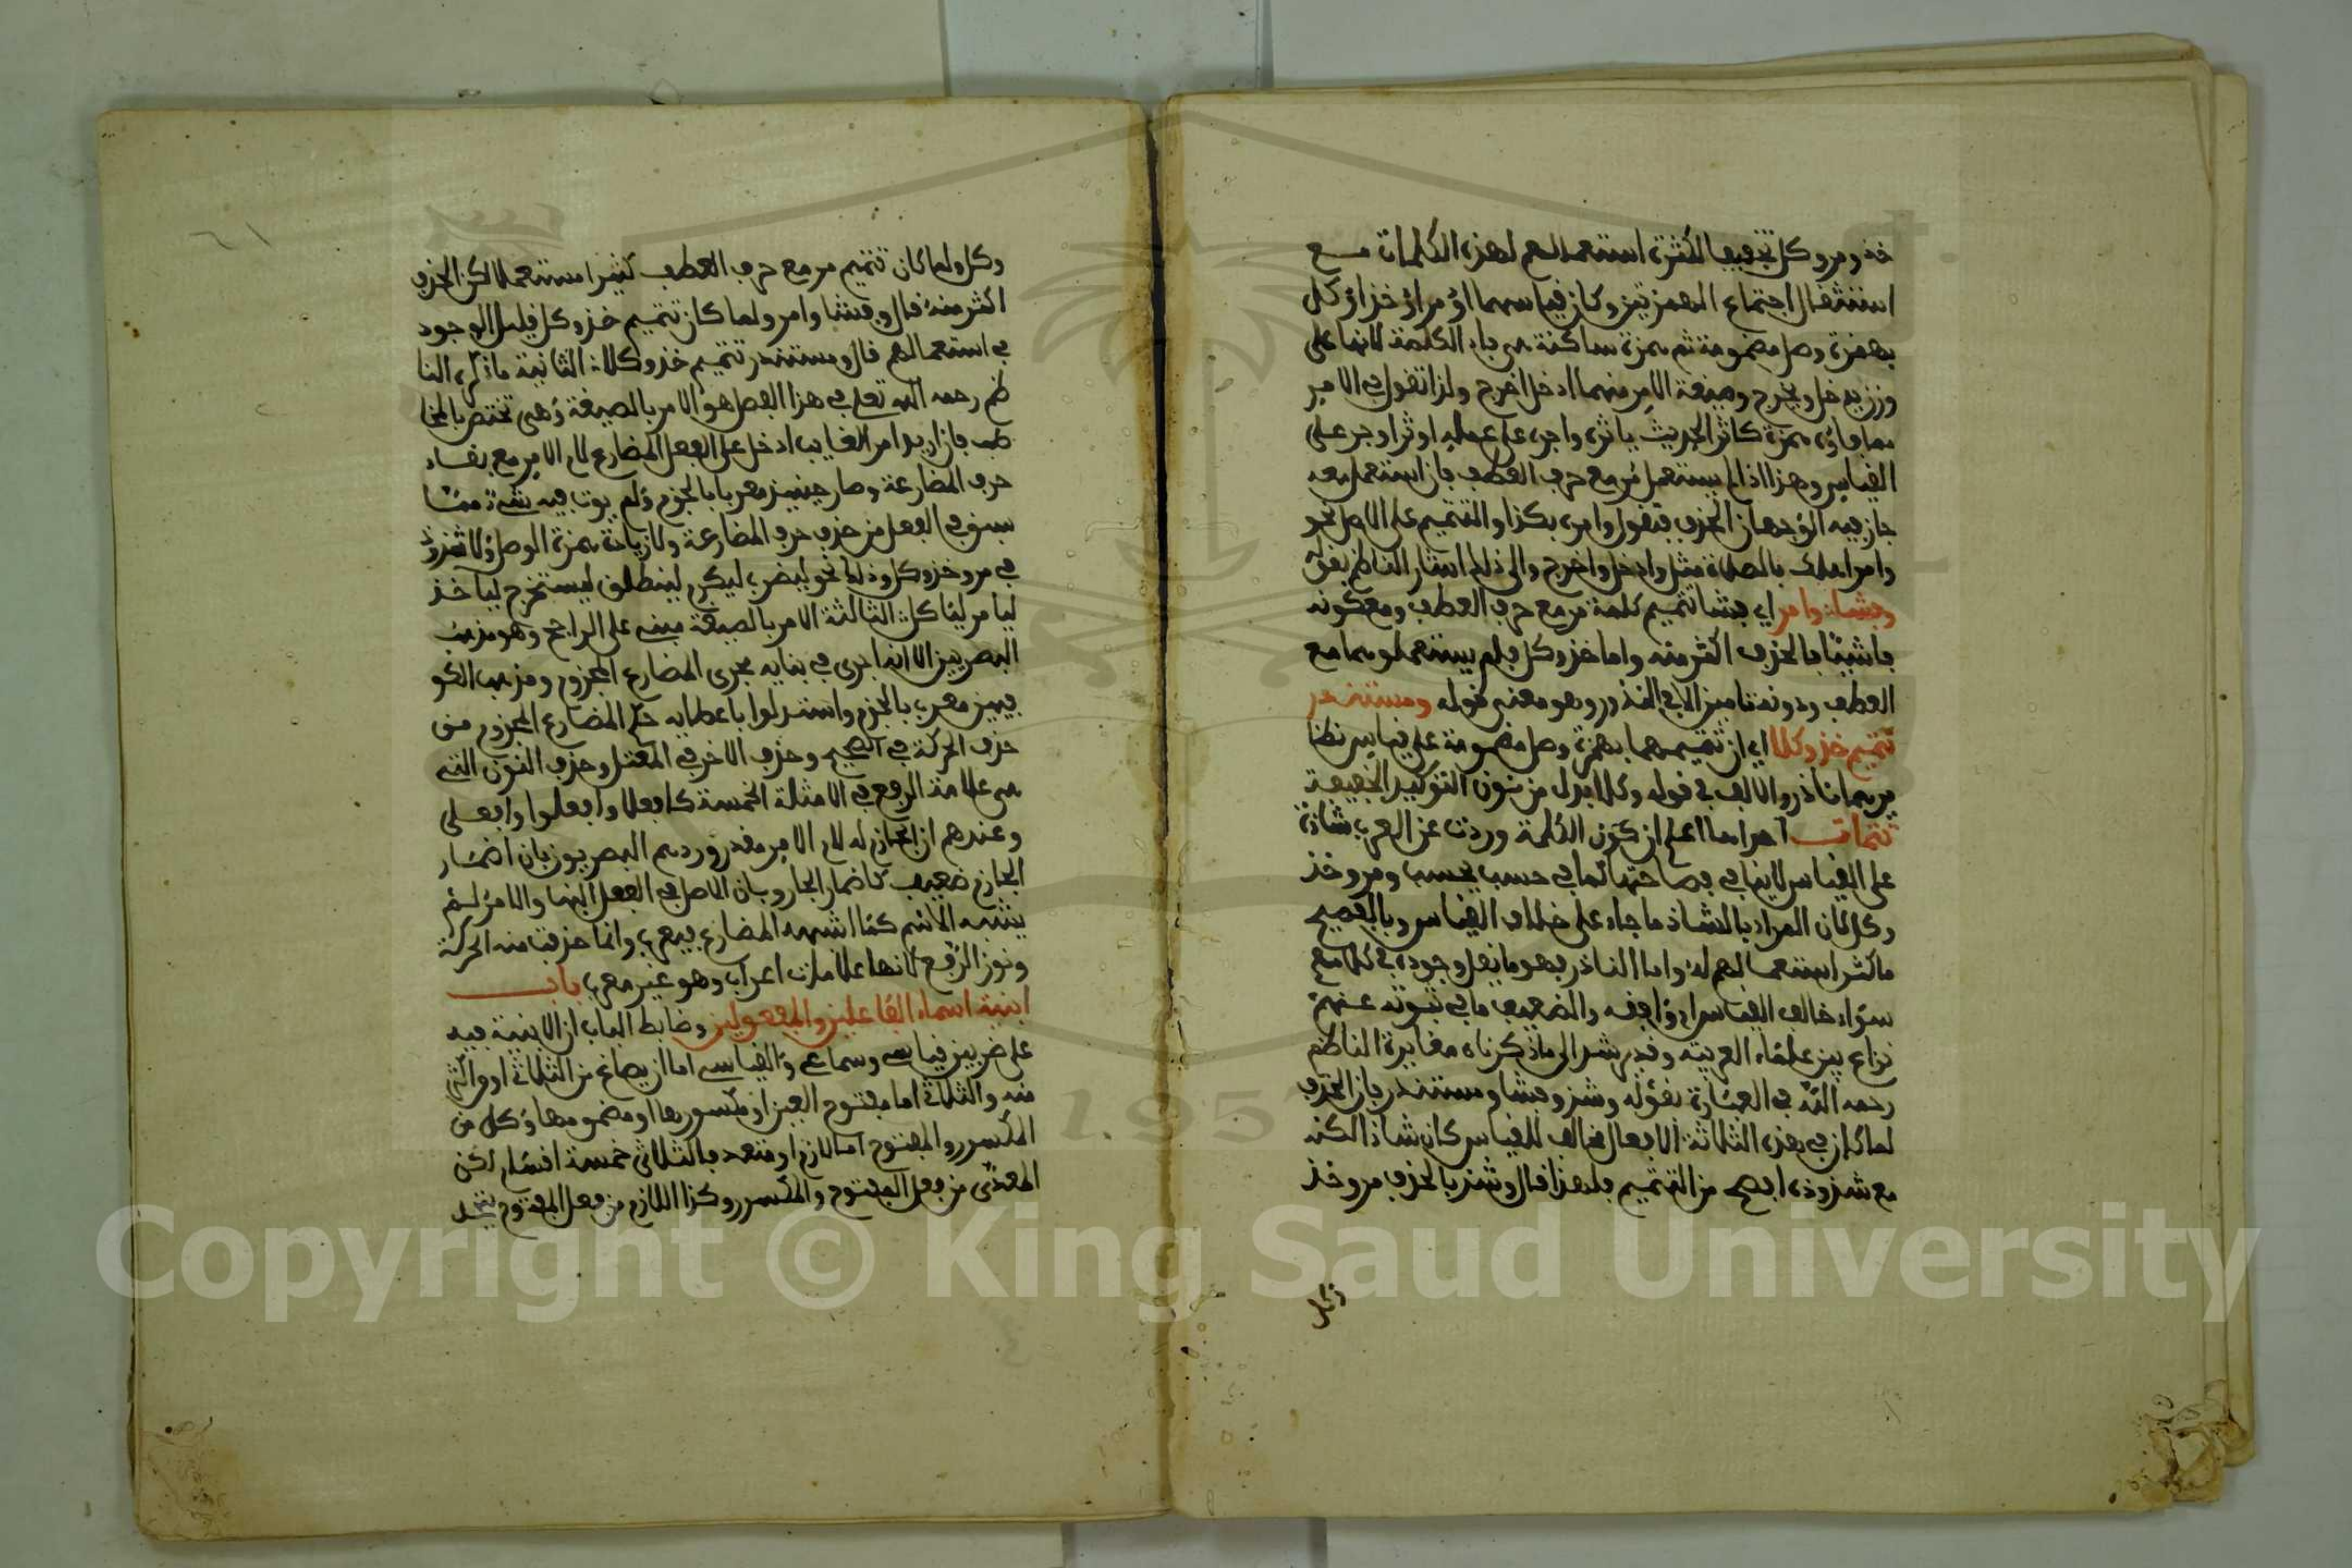 خذ ومر وكل تخفيفا لكثرة استعمالهم لهذه الكلمات مع
استثقال اجتماع الهمزتين وكان قياسهما اؤمر اؤخذ اؤكل
بهمزة وصل مضمومة ثم همزة ساكنة هي فاء الكلمة لانها على
وزن يدخل ويخرج وصيغة الامر منهما ادخل اخرج ولذا تقول في الامر
مما فاؤه همزة كاثر الحديث ياثره واجره على عمله اوثر اوجر على
القياس وهذا اذا لم يستعمل مر مع حرف العطف فان استعمل معه
جاز فيه الوجهان الحذف فتقول وامره بكذا والتتميم على الاصل نحو
وامر اهلك بالصلاة مثل وادخل واخرج والى ذلك اشار الناظم بقوله
وفشا وامر اي فشا تتميم كلمة مر مع حرف العطف ومع كونه
فاشيا فالحذف اكثر منه واما خذ وكل فلم يستعملوهما مع
العطف ودونه تامين الا في الندور وهو معنى قوله ومستندر
تتميم خذ وكلا اي ان تتميمهما بهمزة وصل مضمومة على قياس نظا
يرهما نادر والالف في قوله وكلا بدل من نون التوكيد الخفيفة
تتمات احداها اعلم ان كون الكلمة وردت عن العرب شاذة
على القياس لا ينافي فصاحتها كما في حسب يحسب ومر وخذ
وكل لان المراد بالشاذ ما جاء على خلاف القياس وبالفصيح
ما كثر استعمالهم له واما النادر فهو ما يقل وجوده في كلامهم
سواء خالف القياس او وافقه والضعيف ما في ثبوته عنهم
نزاع بين علماء العربية وقد يرشد الى ما ذكرناه مغايرة الناظم
رحمه الله في العبارة بقوله وشذ وفشا ومستندر فان الحذف
لما كان في هذه الثلاثة الافعال مخالف للقياس كان شاذا لكنه
مع شذوذه افصح من التتميم فلهذا قال وشذ بالحذف مر وخذ
وكل
وكل ولما كان تتميم مر مع حرف العطف كثيرا مستعملا لكن الحذف
اكثر منه قال وفشا وامر ولما كان تتميم خذ وكل قليل الوجود
في استعمالهم قال ومستندر تتميم خذ وكلا الثانية ما ذكره النا
ظم رحمه الله تعلى في هذا الفصل هو الامر بالصيغة وهي تختص بالمخا
طب فان اريد امر الغايب ادخل على الفعل المضارع لام الامر مع بقاء
حرف المضارعة وصار حينيذ معربا بالجزم ولم يوت فيه بشيء مما
سبق في الفعل من حذف حرف المضارعة ولا زيادة همزة الوصل ولا شذوذ
في مر وخذ وكل وذلك نحو ليضرب ليكرم لينطلق ليستخرج لياخذ
ليامر لياكل الثالثة الامر بالصيغة مبني على الراجح وهو مذهب
البصريين الا انه اجري في بنايه مجرى المضارع المجزوم ومذهب الكو
فيين معرب بالجزم واستدلوا باعطايه حكم المضارع المجزوم من
حذف الحركة في الصحيح وحذف الاخر في المعتل وحذف النون التي
هي علامة الرفع في الامثلة الخمسة كافعلا وافعلوا وافعلي
وعندهم ان الجازم له لام الامر مقدر ورده البصريون بان اضمار
الجازم ضعيف كاضمار الجار وبان الاصل في الفعل البنا والامر لم
يشبه الاسم كما اشبهه المضارع فيعرب وانما حذفت منه الحركة
ونون الرفع لانها علامات اعراب وهو غير معرب باب
ابنية اسماء الفاعلين والمفعولين وضابط الباب ان الابنية فيه
على ضربين قياسي وسماعي والقياسي اما ان يصاغ من الثلاثي او اكثر
منه والثلاثي اما مفتوح العين او مكسورها او مضمومها وكل من
المكسور والمفتوح اما لازم او متعد فالثلاثي خمسة اقسام لكن
المعدى من فعل المفتوح والمكسور وكذا اللازم من فعل المفتوح يتحد
Copyright © King Saud University
1957